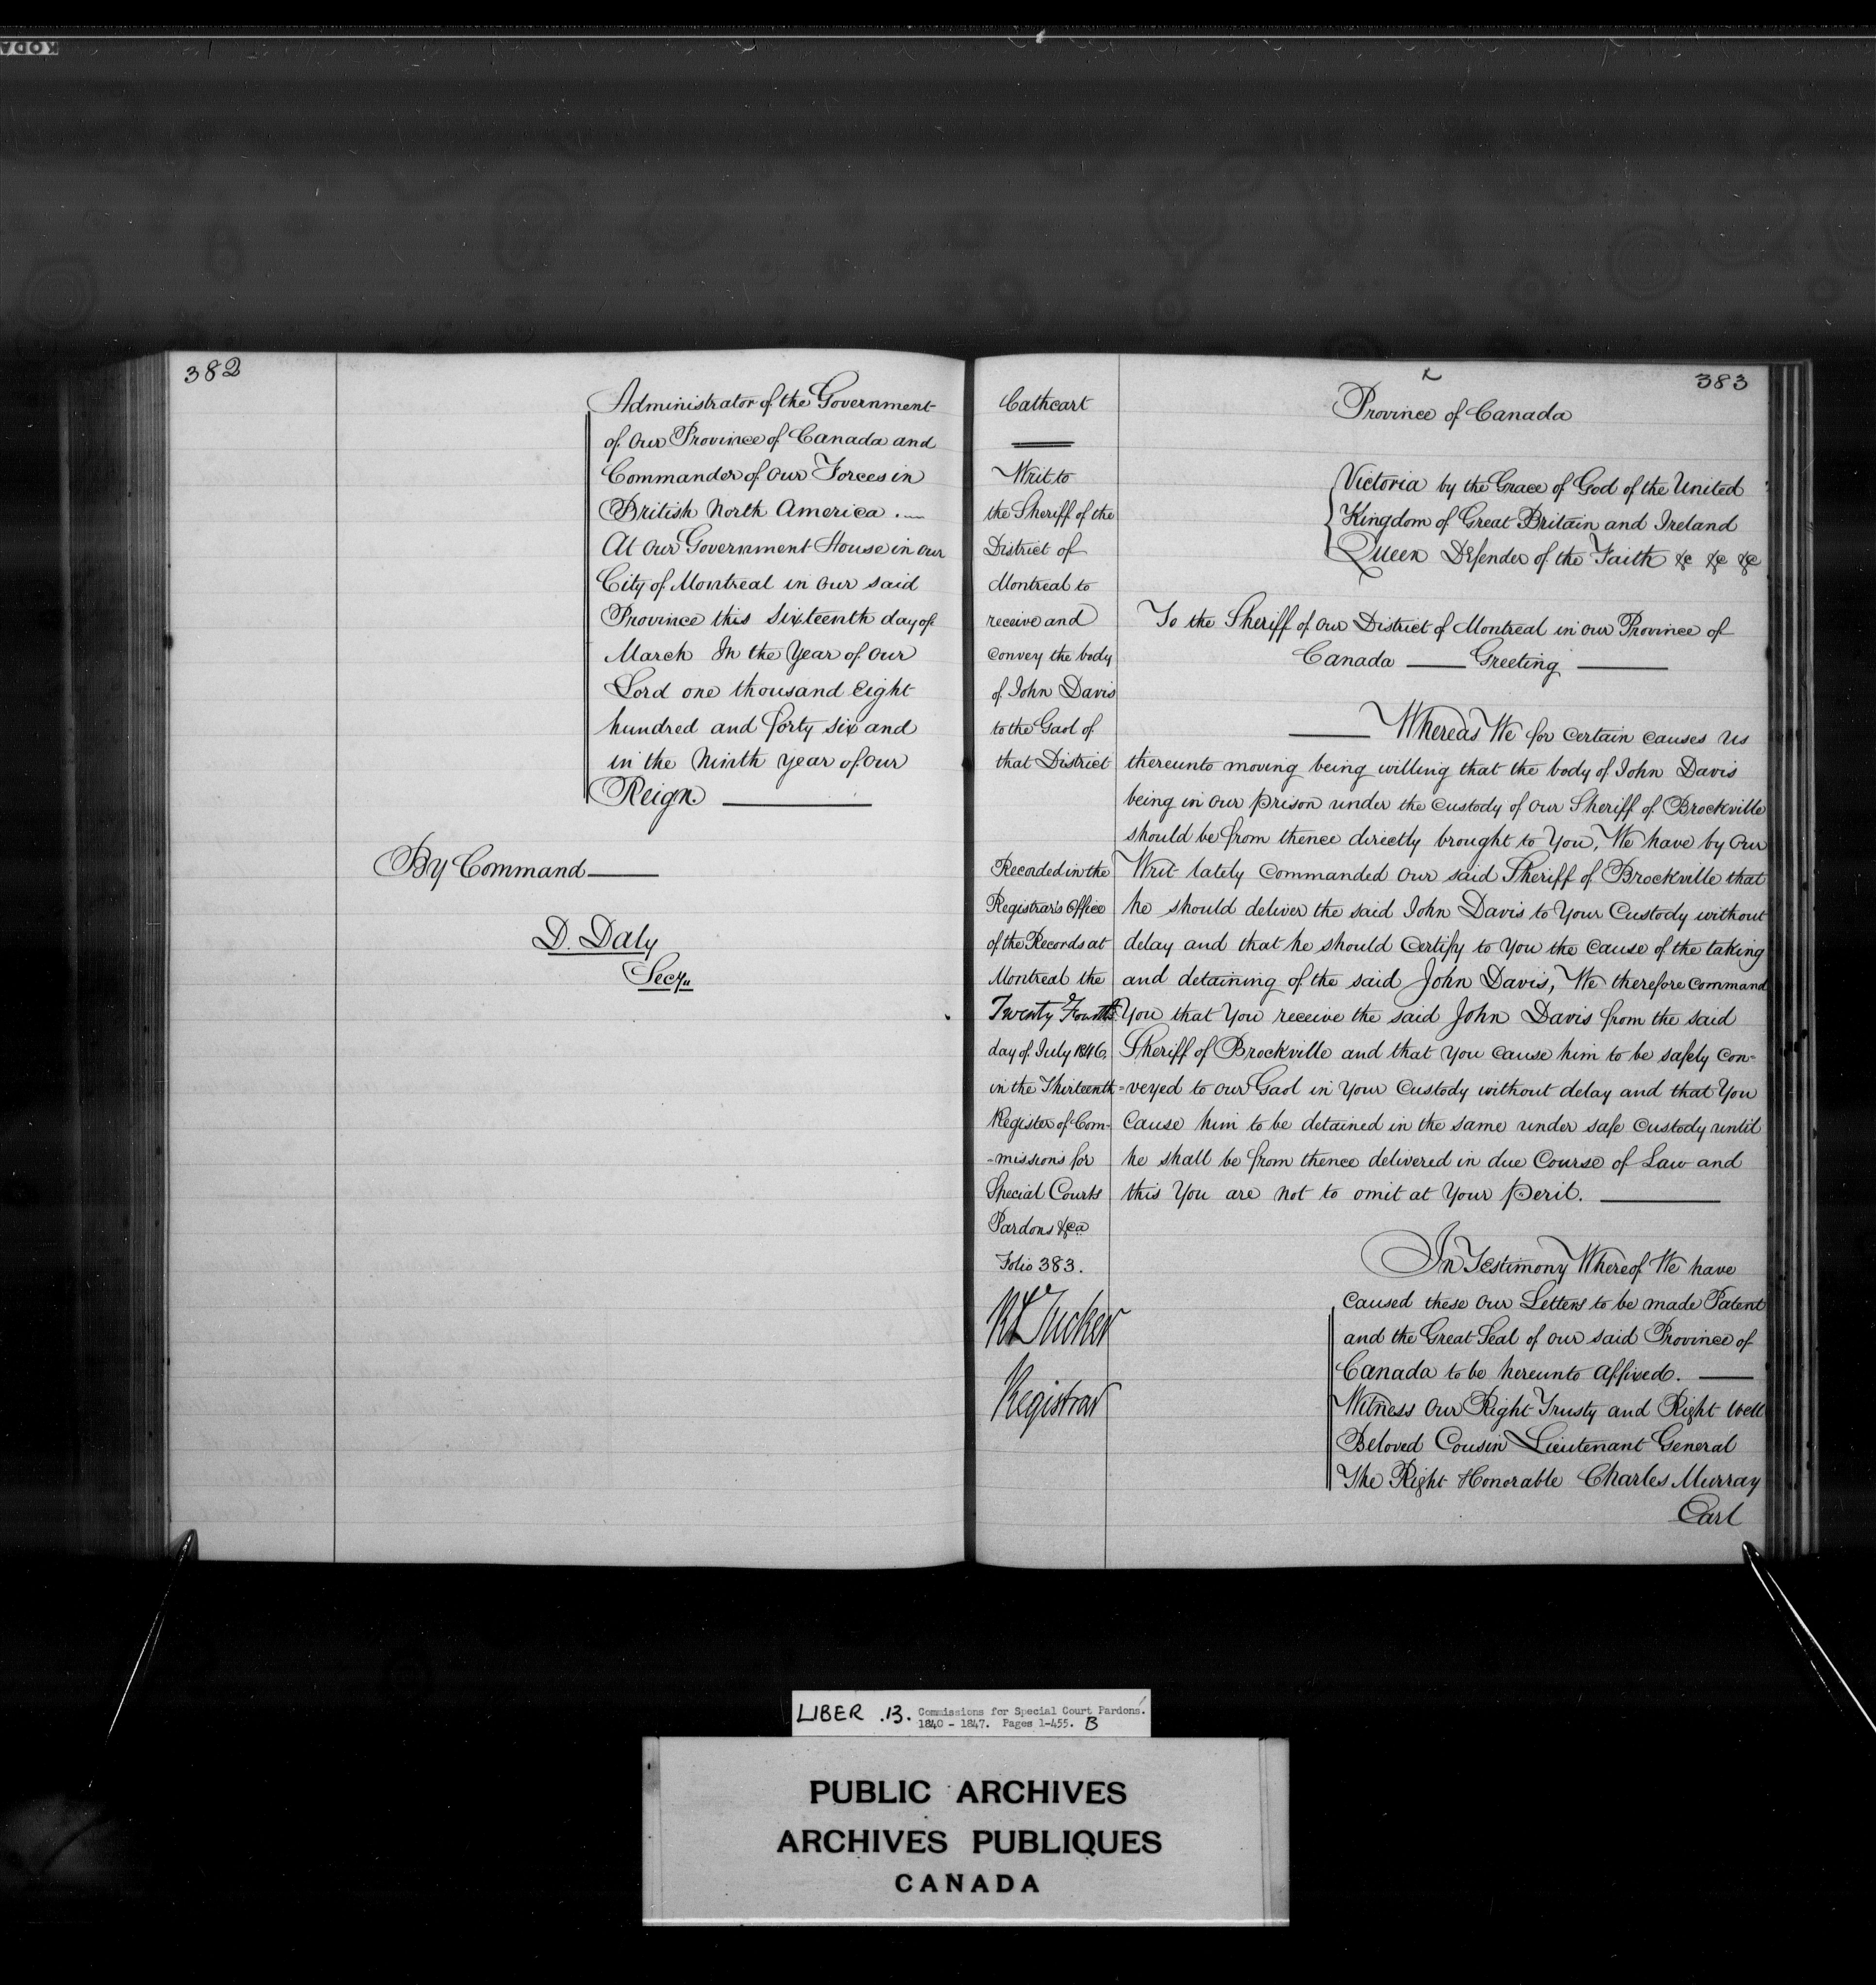 KODA
382
Administrator of the Government
of Our Province of Canada and
Commander of Our Forces in
British North America .
At Our Government House in Our
City of Montreal in Our said
Province this Sixteenth day of
March In the Year of Our
Lord one thousand Eight
hundred and forty six and
in the Ninth Year of Our
Reign.
By Command
D. Daly
Secy.
Cathcart
Writ to
the Sheriff of the
District of
Montreal to
receive and
convey the body
of John Davis
to the Gaol of
that District
Recorded in the
Registrar's Office
of the Records at
Montreal the
Twenty Fourth
day of July 1846,
in the Thirteenth
Register of Com-
-missions for
Special Courts
Pardons &ca
Folio 383.
R Tucker
Registrar
383
Province of Canada
Victoria by the Grace of God of the United
Kingdom of Great Britain and Ireland
Queen Defender of the Faith &c &c &c
To the Sheriff of Our District of Montreal in Our Province of
Canada —— Greeting ——
Whereas We for certain causes Us
thereunto moving being willing that the body of John Davis
being in Our prison under the Custody of Our Sheriff of Brockville
should be from thence directly brought to You, We have by Our
Writ lately Commanded Our said Sheriff of Brockville that
he should deliver the said John Davis to Your Custody without
delay and that he should Certify to You the Cause of the taking
and detaining of the said John Davis, We therefore Command
You that You receive the said John Davis from the said
Sheriff of Brockville and that You cause him to be safely con=
=veyed to our Gaol in Your Custody without delay and that You
Cause him to be detained in the same under safe Custody until
he shall be from thence delivered in due Course of Law and
this You are not to omit at Your peril.
In Testimony Whereof We have
Caused these Our Letters to be made Patent
and the Great Seal of Our said Province of
Canada to be hereunto Affixed.
Witness Our Right Trusty and Right Well
Beloved Cousin Lieutenant General
The Right Honorable Charles Murray
Earl
LIBER .13. Commissions for Special Court Pardons.
1840 - 1847. Pages 1-455. B
PUBLIC ARCHIVES
ARCHIVES PUBLIQUES
CANADA